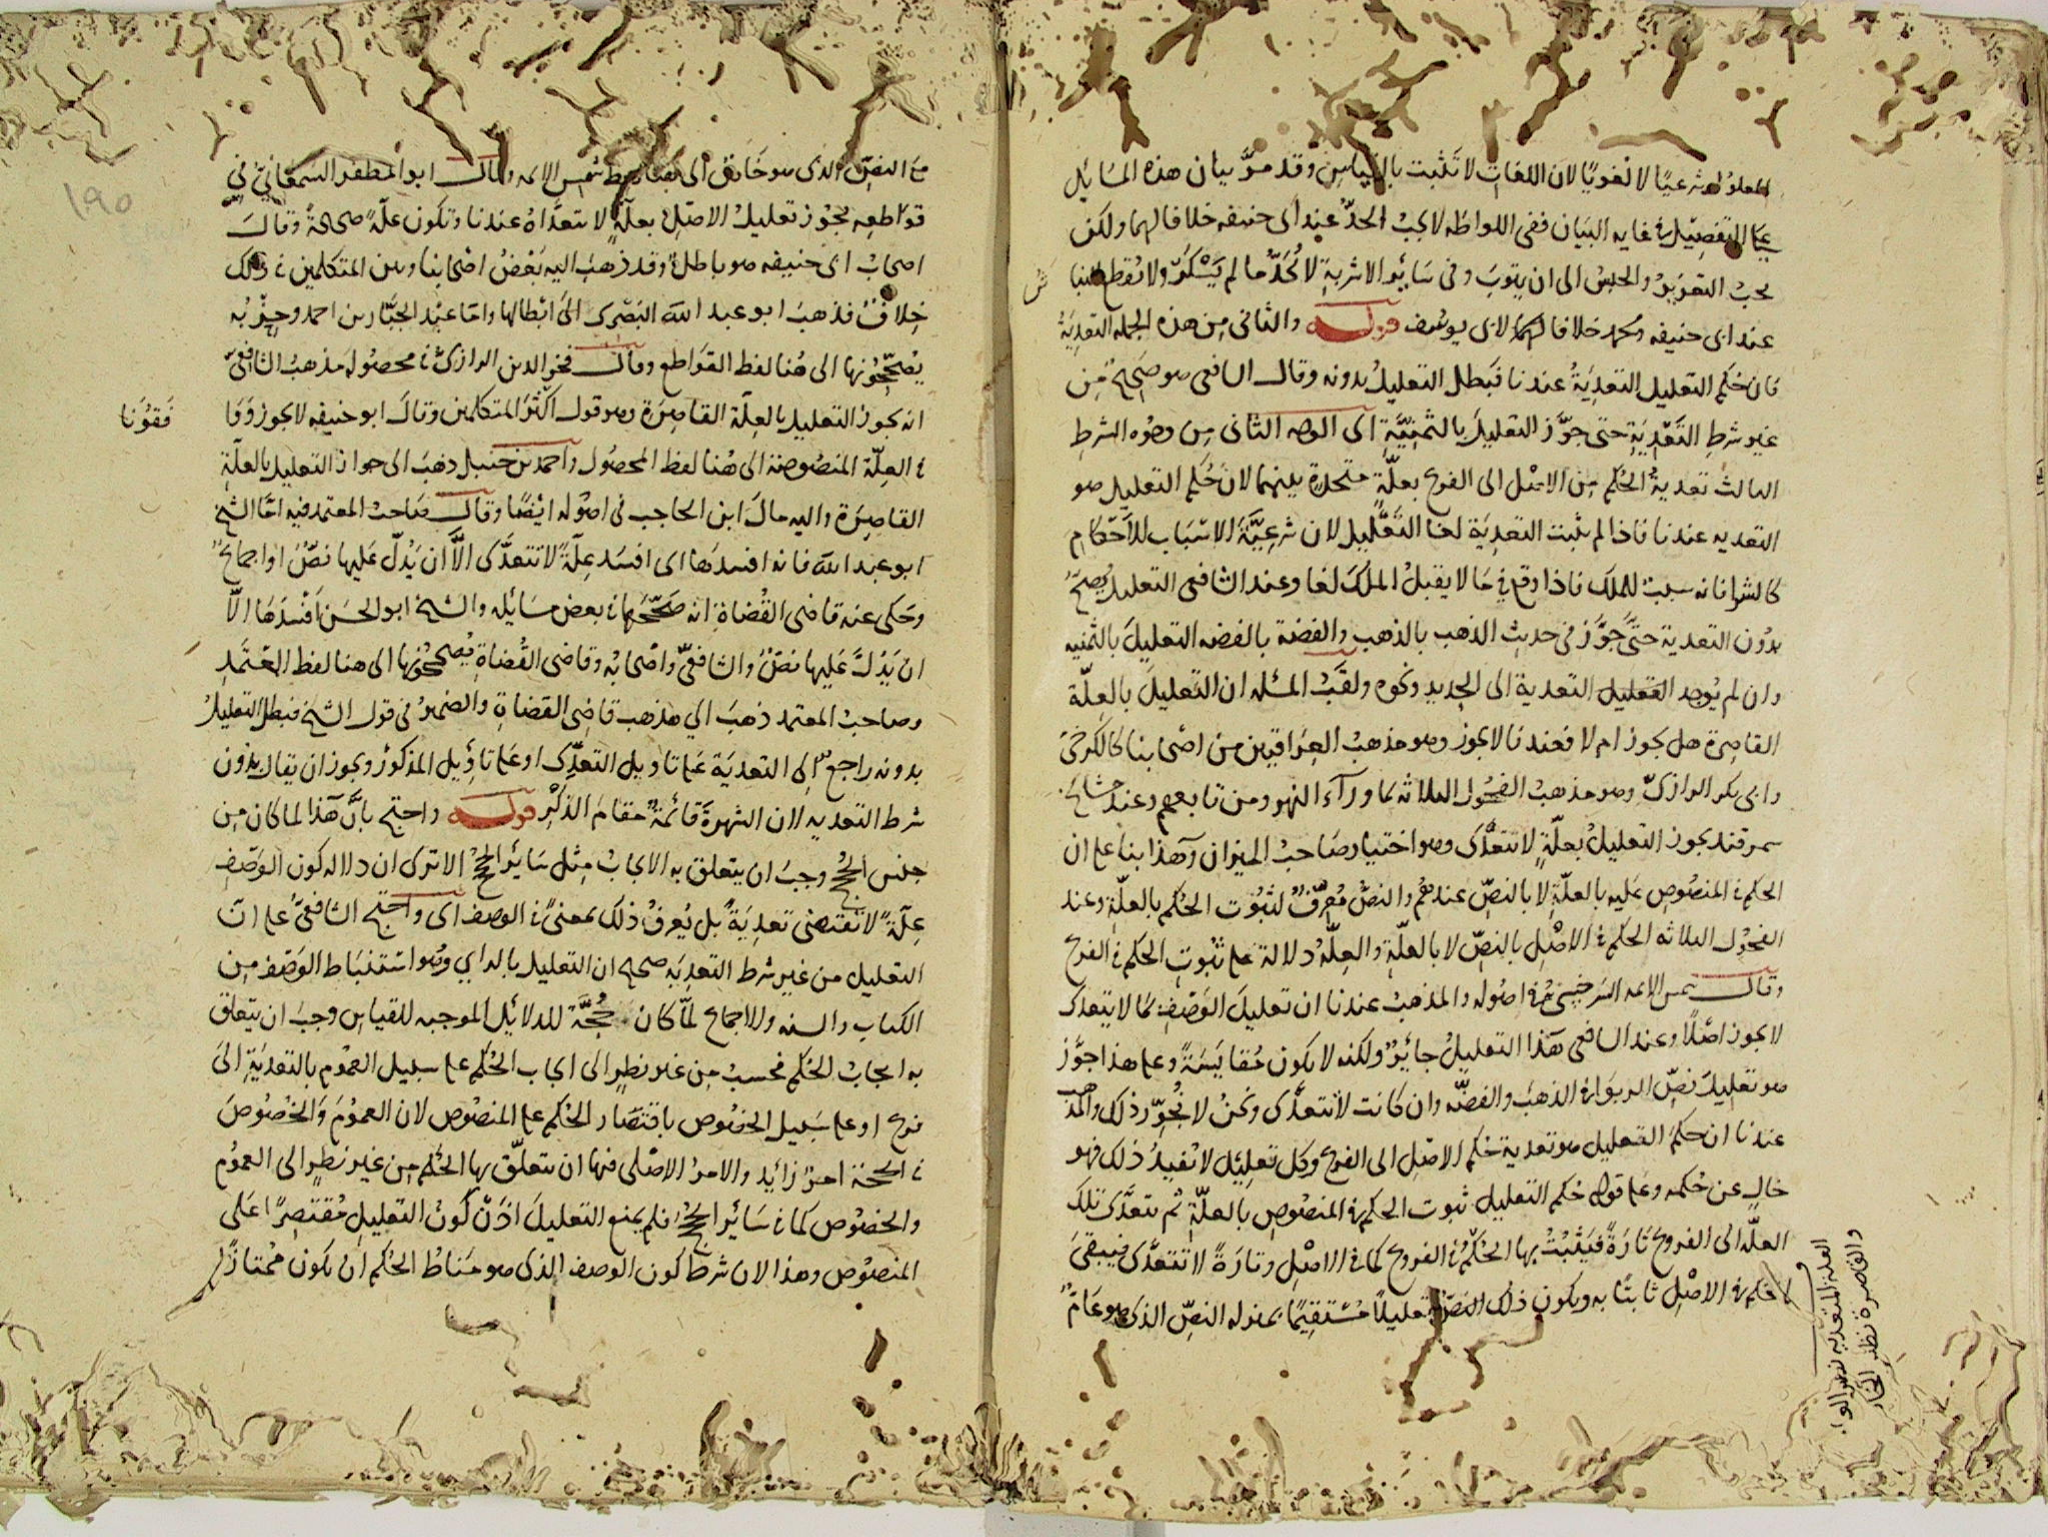 المعلول شرعيًا لا لغويًا لان اللغات لا تثبت بالقياس وقد مرَّ بيان هذه المسائل
على التفصيل في غايه البيان ففى اللواطه لا يجب الحدّ عند ابى حنيفه خلافا لهما ولكن
يجب التعزير والحبس الى ان يتوب وفى سائر الاشربة لا نُحَدّ ما لم يسكر ولا نُقطع
عند ابى حنيفه ومحمد خلافا لابى يوسف قوله والثانى من هذه الجمله التعدية
فان حُكم التعليل التعديَةُ عندنا فبطل التعليل بدونه وقال الشافعى هو صحيح من
غير شرطِ التَّعْدِيَةِ حتى جوَّز التعليل بالثمنيّةِ اى الوجه الثانى من وجوه الشرط
الثالث تعديةُ الحُكم من الاصْل الى الفرع بعلّةٍ متحدة بينهما لان حُكم التعليل هو
التعديه عندنا فاذا لم تثبت التعدِيَة لغا التَّعْليل لان شرعيَّة الاسْبَاب للأحكام
كالشرا فانه سبب للملك فاذا وقع في مَا لا يقبلُ الملكَ لغا وعند الشافعى التعليل يُصحّ
بدُون التعدية حتىَّ جوَّز فى حديث الذهب بالذهب والفضة بالفضه التعليلَ بالثمنيه
وان لم يُوجد التعليل التعدية الى الحديد ونحوه ولقَبُ المسئله ان التعليلَ بالعِلّة
القاصِرة هل يجوز ام لا فعندنا لا يجوز وهو مذهبُ العِراقيين من اصْحابنا كالكرخىّ
وابى بكر الرازىّ وهو مذهب الفُحُول الثلاثه بما وراء النهر ومن تابعهم وعند مشايخ
سمرقند يجوز التعليلُ بعلّةٍ لا تتعدَّى وهو اختيار صَاحبُ الميزان وهذا بنا على ان
الحكم في المنصُوص عَليه بالعلّةِ لا بالنصّ عندهُم والنصُّ مُعرِّفٌ لثبُوت الحُكم بالعلّةِ وعند
الفحول الثلاثه الحكم في الاصْلِ بالنصِّ لا بالعلّةِ والعِلّةُ دلالة على ثبُوتِ الحكم في الفرع
وقال شمس الايمه السَرخسِىّ في اصُوله والمذهبُ عندنا ان تعليلَ الوَصْفِ بما لا يتعدى
لا يجوز اصْلًا وعند الشافعى هَذا التعليلُ جائزٌ ولكنه لا يكون مُقايَسَةً وعلى هذا جوَّز
هو تعليلَ نصِّ الربوَا في الذهَب والفضّه وان كانت لا تتعدَّى ونحنُ لا نُجوِّز ذلك والمذهب
عندنا ان حكمَ التعليل هو تعدية حُكم الاصْلِ الى الفرع وكل تعليلٍ لا يُفيدُ ذلك فهو
خالٍ عن حُكمه وعلى قوله حُكم التعليل ثبوت الحكم في المنصُوص بالعلّةِ ثم تتعدَّى تلك
العلّه الى الفروع تارَةً فيَثْبُتُ بها الحُكمُ في الفروع كما في الاصْلِ وتارَةً لا تتعدَّى فيبقىَ
الحكم في الاصْلِ ثابتًا به ويكون ذلك تعليلًا مُستقيمًا بمنزله النصِّ الذى هو عَامٌّ
العلة المتعديه نظير
والقاصرة نظير
مع النصّ الذى هو خاصٌّ الى هنا لفظ شمس الايمه وقال ابو المظفر السَمعَانِيُّ في
قواطعِه يجُوز تعليلُ الاصْل بعلّةٍ لا تتعدَّاهُ عندنا وتكون علّةً صحيحةً وقالَ
اصحابُ ابى حنيفه هو باطلٌ وقد ذهبَ اليه بَعْضُ اصْحابنا وبين المتكلمين في ذلك
خِلافٌ فذهبَ ابو عبد الله البَصْرى الىَ ابْطالها وامّا عبْد الجبّار بن احمد وحِزْبُه
يُصَحّحُونها الى هُنا لفظ القوَاطع وقال فخر الدين الرازىُّ في محصُوله مَذهبُ الشافعىّ
انه يجوز التعليل بالعِلّة القاصِرَة وهو قول اكثَر المتكلمين وقالَ ابو حنيفه لا يجوز وَوَا
فَقوُنَا
في العِلّة المنصُوصَة الى هُنا لفظ المحصُول واحمد بن حنبل ذهبَ الى جواز التعليل بالعلّةِ
القاصِرَة واليه مالَ ابن الحاجب فى اصُوله ايْضًا وقال صَاحبُ المعتمد فيه امَّا الشيخ
ابو عبد الله فانه افسدَها اى افسَد عِلّةً لا تتعدَّى الَّا ان يَدُلّ عَليها نصٌّ او اجماعٌ
وحَكى عنه قاضى القُضاةِ انه صَحّحَها في بعض مسَائله والشيخ ابو الحسَن افْسَدَها الَّا
ان يَدُلَّ عَليها نصٌّ والشافعىُّ واصْحابُه وقاضى القُضاةِ يُصَححُونها الى هنا لفظ المعْتمَد
وصاحبُ المعتمد ذهبَ الي مذهب قاضِى القضاةِ والضميرُ فى قول الشيخ فبطل التعليلُ
بدونه راجعٌ الى التعديَة على تاويل التعدِّى او على تاوِيل المذكُور ويجوز ان يقال بدُون
شرط التعديه لان الشهرَةَ قائمةٌ مَقامَ الذكْر قوله واحتج بانَّ هَذا لما كان من
جنس الحُجج وجبَ ان يتعلق به الايجابُ مِثل سَائر الحُجج الا ترى ان دلاله كون الوَصْفِ
عِلّةً لا تقتضى تعدِيَةً بل يُعرفُ ذلك بمعنىً في الوصف اى واحتج الشافعىّ على انّ
التعليل من غير شرط التعديَه صحيح ان التعليل بالراي وهُو استنبَاط الوَصْف من
الكتاب والسنه والاجماع لمّا كان حُجّةً للدلائل الموجبه للقياس وجبَ ان يتعلق
به ايجابُ الحُكم فحسبُ مِن غير نظرٍ الى ايجاب الحُكم على سبيل العمُوم بالتعديَةِ الىَ
فرع او على سَبيل الخصُوص باقتصَار الحُكم على المنصُوص لان العمُومَ وَالخُصُوصَ
في الحُجّة امرٌ زائد والامرُ الاصْلى فيها ان يتعلّق بها الحُكم من غير نظرٍ الى العمُوم
والخصُوص كما في سَائر الحُجج فلم يمنع التعليلَ اذَنْ كونُ التعليلِ مُقتصِرًا عَلى
المنصُوص وهذا لان شرط كون الوصف الذى هو مَناطُ الحُكم ان يكون ممْتازًا
١٩٥